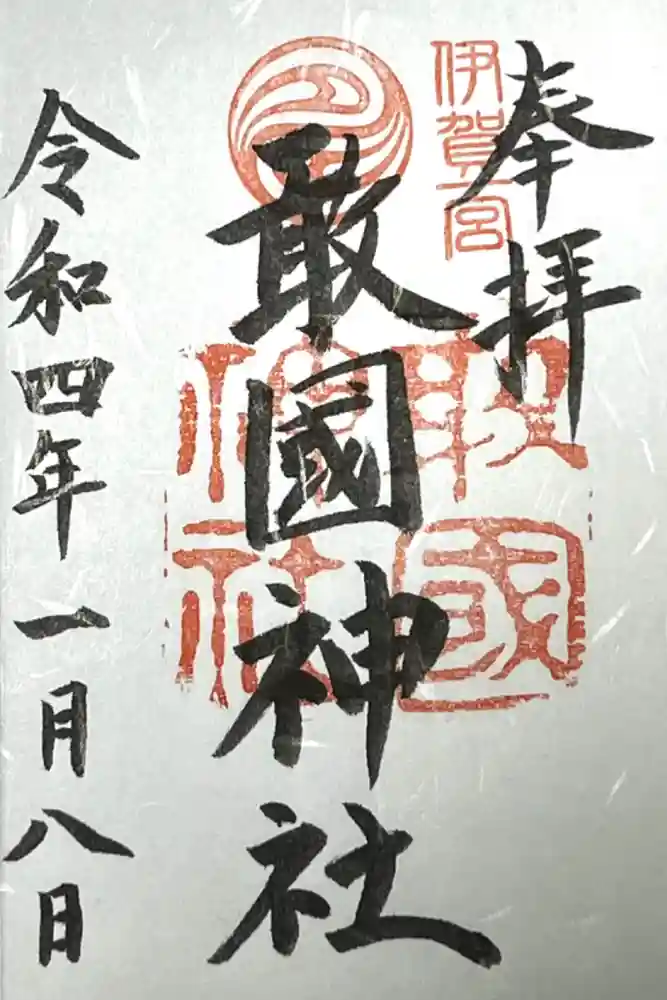 奉拝
伊賀一宮
敢國神社
敢國神社
令和四年一月八日